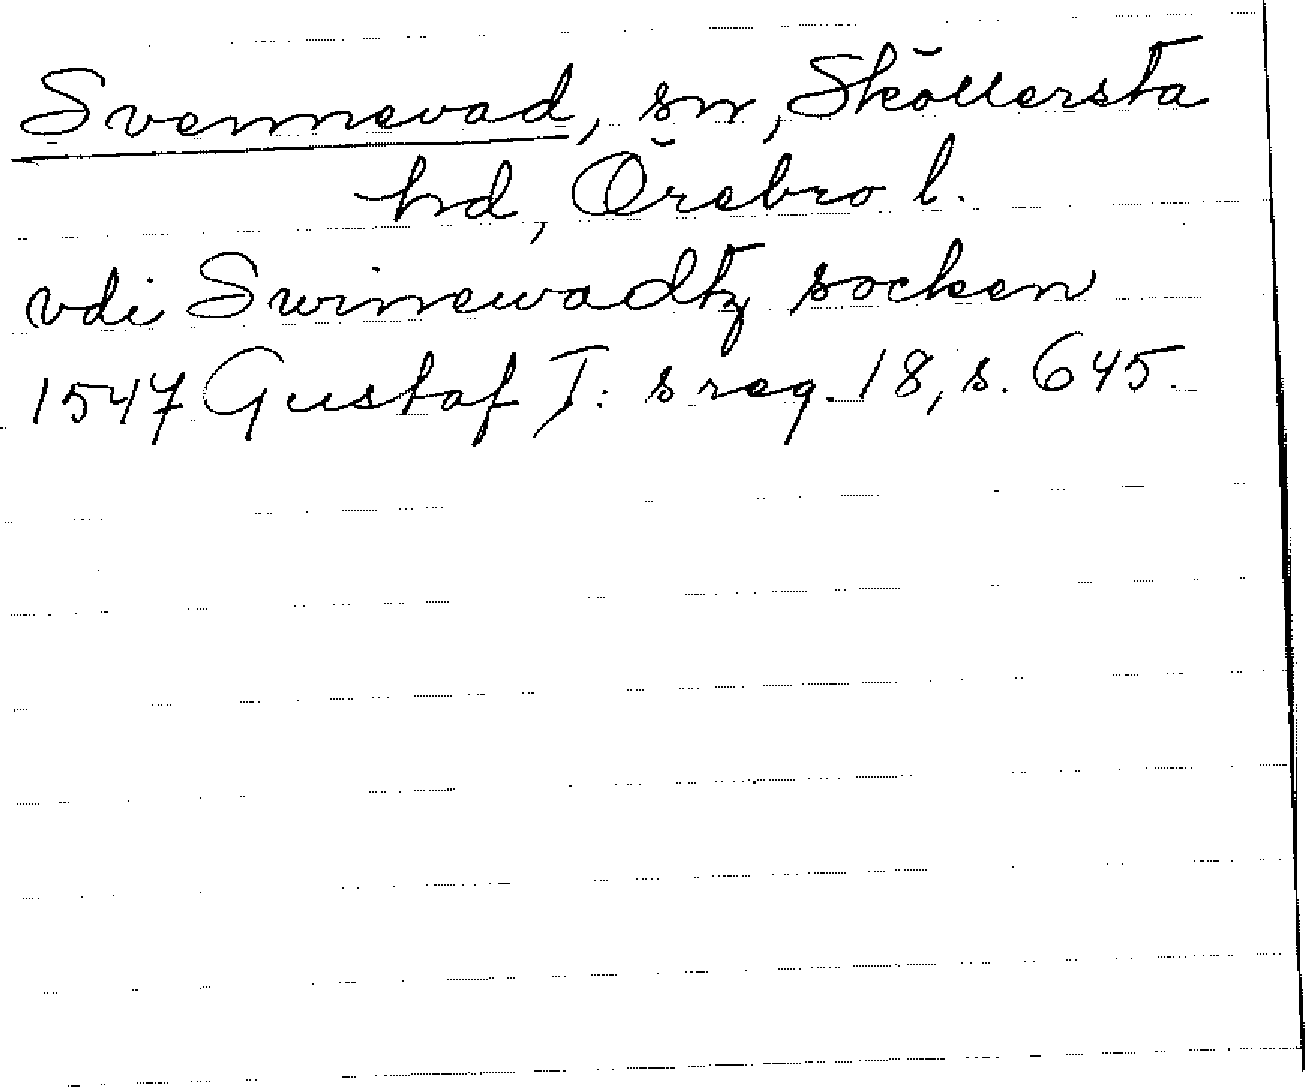 Svennevad, sn, Sköllersta
hd, Örebro l.
vdi Swinewadtz socken
1547 Gustaf I: s reg. 18, s. 645.